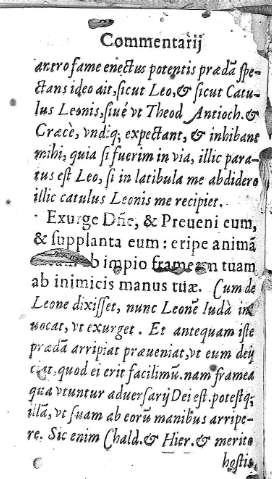 Commentarij
antro fame enectus potentis prædā spe-
ctans ideo ait, sicut Leo, & sicut Catu-
lus Leonis, siué vt Theod. Antioch. &
Græcè, vndiq; expectant, & inhibant
mihi, quia si fuerim in via, illic para-
tus est Leo, si in latibula me abdidero
illic catulus Leonis me recipiet.
Exurge Dñe, & Preueni eum,
& supplanta eum: eripe animā
ab impio frameam tuam
ab inimicis manus tuæ. Cum de
Leone dixisset, nunc Leonē Iudà in
uocat, vt exurget. Et antequam iste
prædā arripiat præueniat, vt eum deij
ciat, quod ei erit facilimū. nam framea
qua vtuntur aduersarij Dei est. potestq;
illā, vt suam ab eorū manibus arripe-
re. Sic enim Chald. & Hier. & merito
hostis